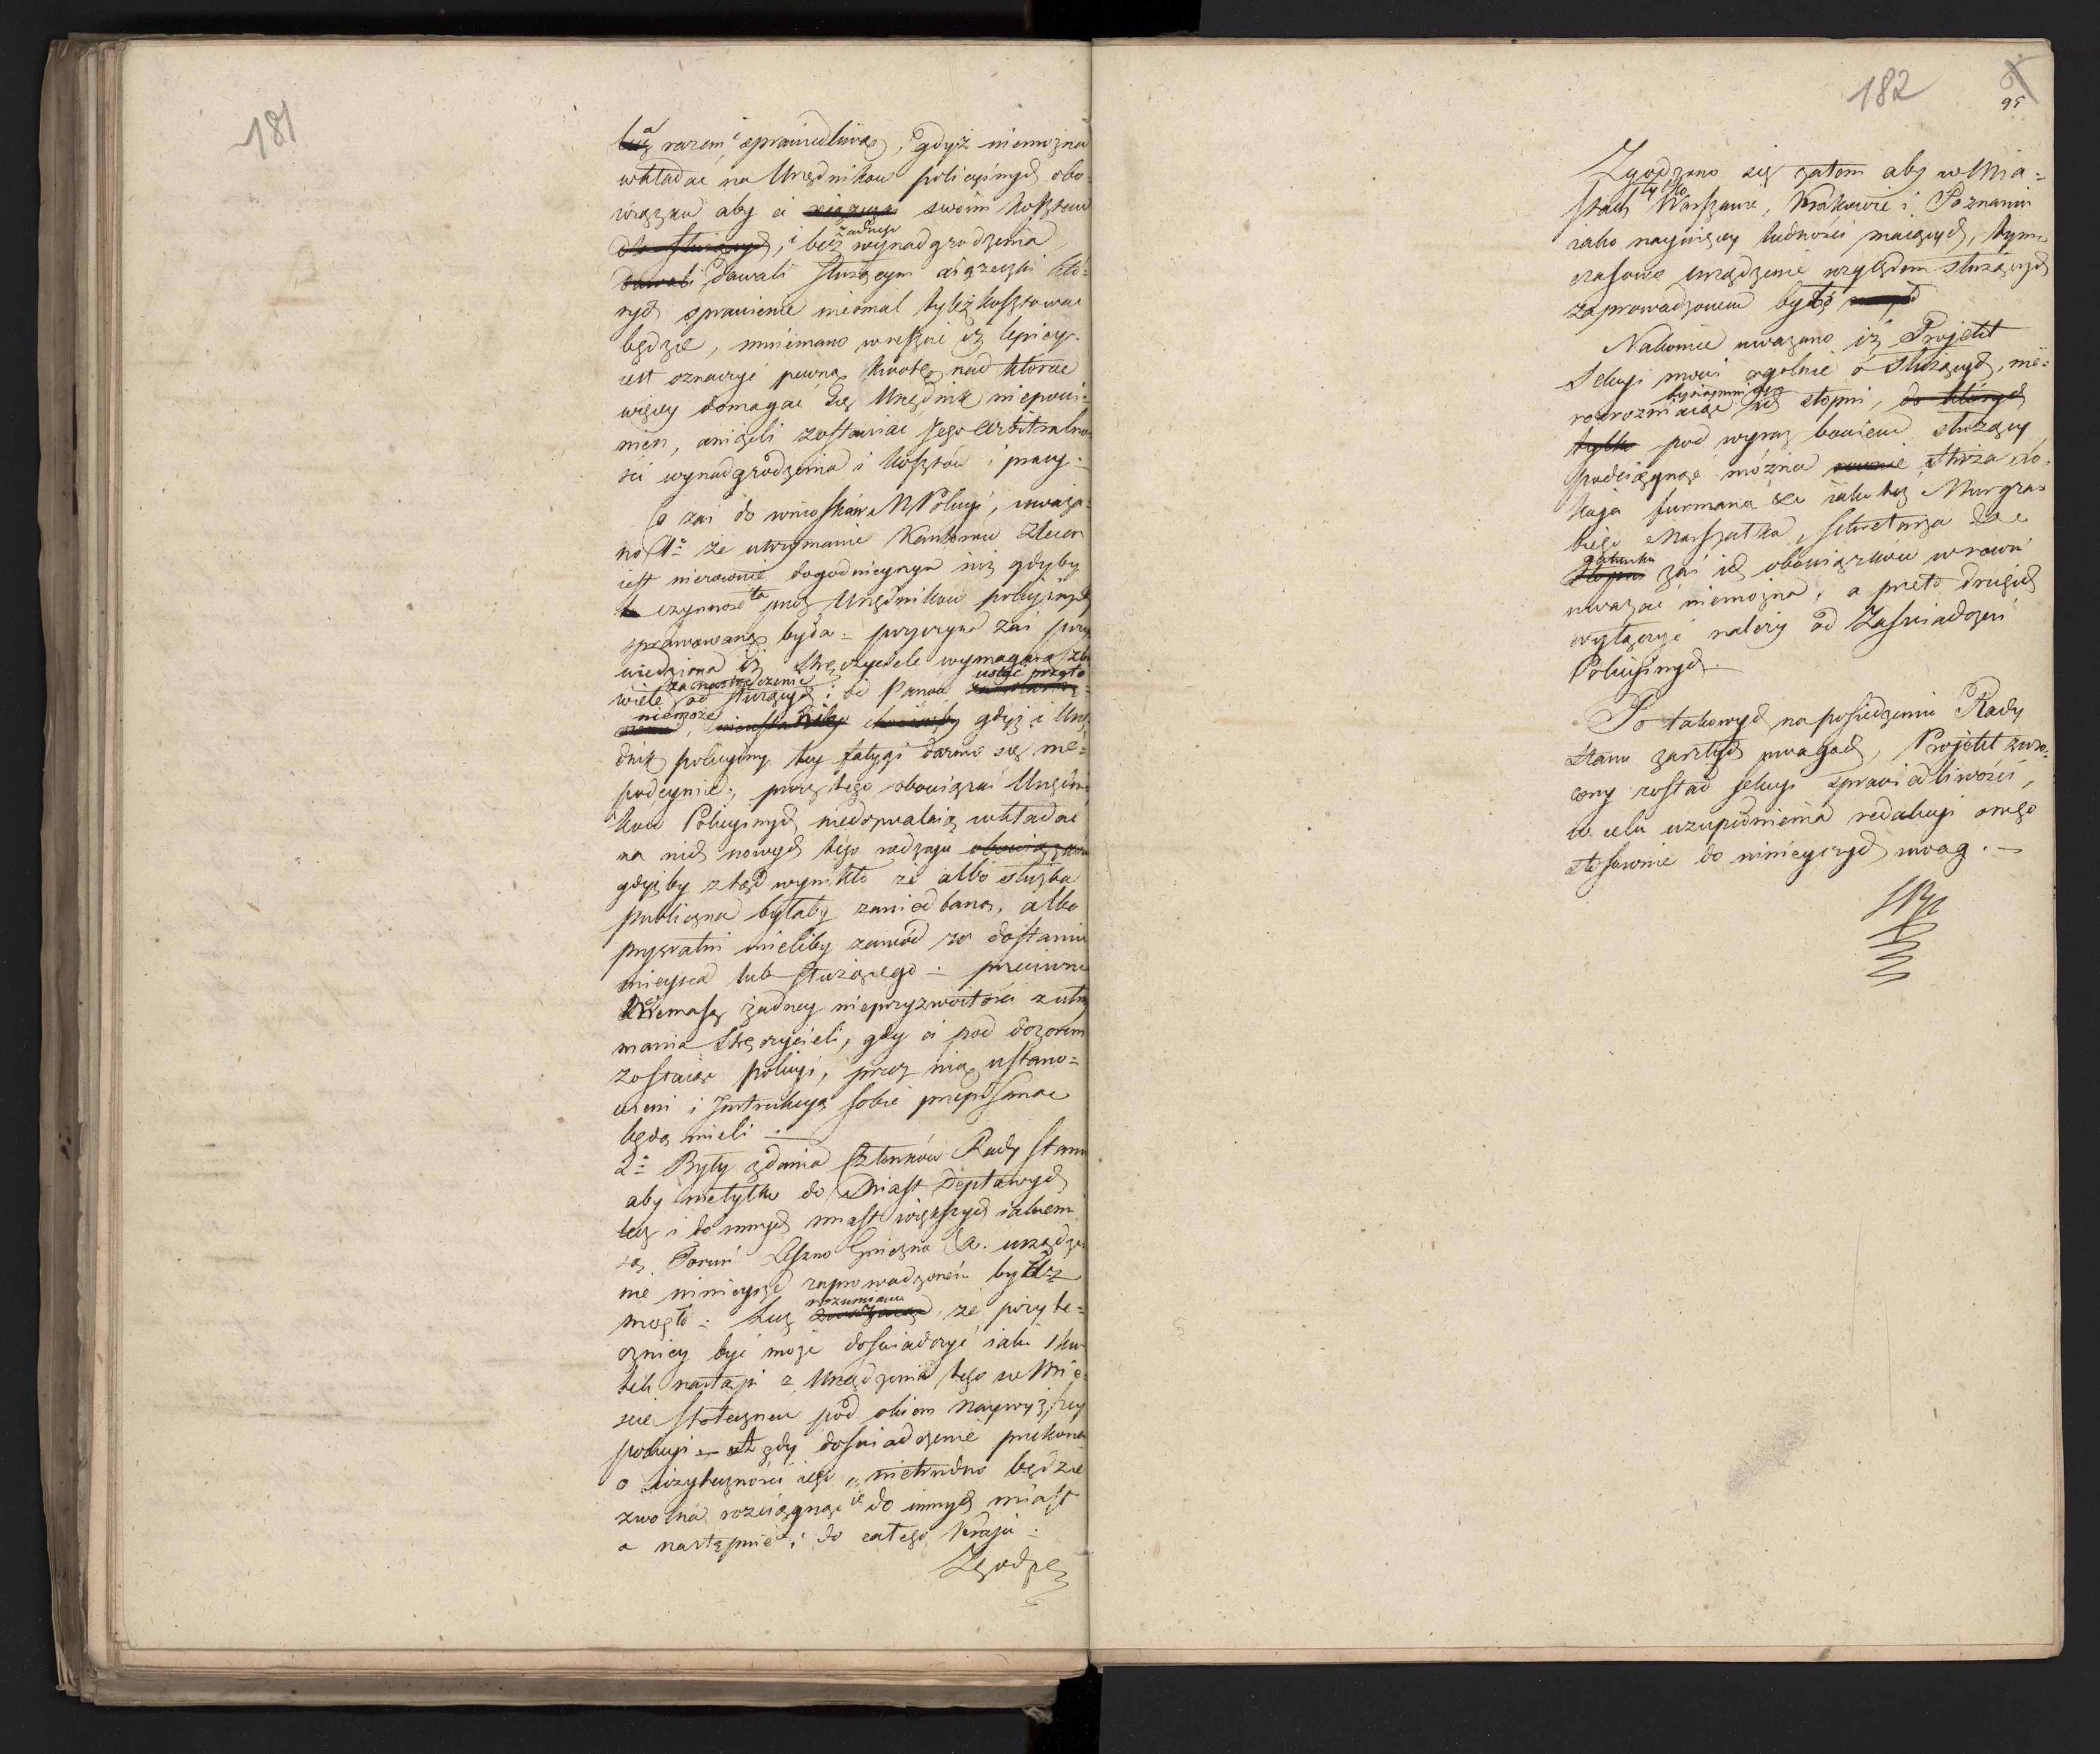 181
razem i sprawiedliwą, gdyż niemożna
wkładać na Urzędników policyinych obo=
wiązku aby ci swoim kosztem
i bez żadnego wynadgrodzenia
dawali służącym xiążeczki któ=
rych sprawienie niemal tyleż kosztować
będzie, mniemano wreście iż lepiey
iest oznaczyć pewną kwotę nad którą
więcey domagać się Urzędnik niepowi=
nien, aniżeli zostawiać jego Arbitralno
ści wynadgrodzenia i kosztów i pracy.
Co zaś do wniosków M Policyi, uważa=
no 1o że utrzymanie Kantorów Zleceń
iest nierównie dogodnieyszym niż gdyby
czynność ta przez Urzędników policyinych
sprawowaną była = przyczyna zaś przy
wiedziona iż Stręczyciele wymagaią zby
wiele za nastręczenie od służących i od Panów ustać przeto
niemoże, gdyż i Urzę
dnik policyiny tey fatygi darmo się nie=
podeymie, prócz tego obowiązki Urzędni
ków Policyinych niedozwalaią wkładać
na nich nowych tego rodzaju
gdyżby ztąd wynikło że albo służba
publiczna byłaby zaniedbaną, albo
prywatni mieliby zawód w dostaniu
mieysca lub służącego = przeciwnie
niemasz żadney nieprzyzwoitości z utrzy
mania Stręczycieli, gdy ci pod dozorem
zostaiąc policyi, przez nią ustano=
wieni i Instrukcyą sobie przepisaną
będą mieli =
2o Były zdania Członków Rady Stanu
aby nietylko do Miast Deptowych
lecz i do innych miast większych iakiemi
są Toruń Leszno Gniezno &. urządze
nie ninieysze zaprowadzonem bydź
mogło = Lecz rozumiano że pożyte=
czniey być może doświadczyć iaki sku
tek nastąpi z Urządzenia tego w Mie=
ście stołecznem pod okiem naywyższey
policyi = a gdy doświadczenie przekona
o użyteczności iego, nietrudno będzie
zwolna rozciągnąć ie do innych miast
a następnie i do całego kraju =
Zgodzo
182
95
Zgodzono się zatem aby w Mia=
stach tylko Warszawie, Krakowie i Poznaniu
iako naywięcey ludności maiących, tym=
czasowe urządzenie względem służących
zaprowadzonem było
Nakoniec uważano iż Projekt
Sekcyi mówi ogólnie o służących, nie=
rozróżniaiąc bynaymniey ich stopni, do których
tylko pod wyraz bowiem służący
podciągnąć można Stróża lo=
kaja furmana &c iako też Murgra=
biego Marszałka, Sekretarza &c
gatunku zaś ich obowiązków w równi
uważać niemożna, a przeto drugich
wyłączyć należy od Zaświadczeń
Policyinych.
Po takowych na posiedzeniu Rady
Stanu zaszłych uwagach, Projekt zwró=
cony został sekcyi sprawiedliwości,
w celu uzupełnienia redakcyi onego
stosownie do ninieyszych uwag. =